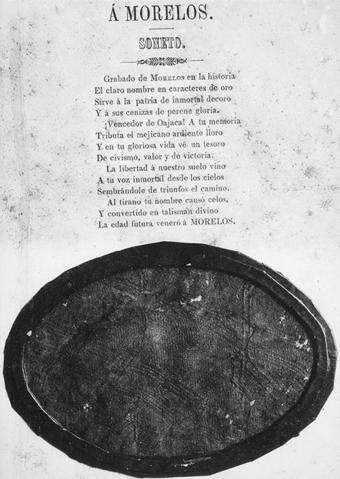 Á MORELOS.
SONETO.
Grabado de MORELOS en la historia
El claro nombre en caracteres de oro
Sirve á la patria de inmortal decoro
Y á sus cenizas de perene gloria.
¡Vencedor de Oajaca! A tu memoria
Tributa el mejicano ardiente lloro
Y en tu gloriosa vida vé un tesoro
De civismo, valor y de victoria.
La libertad á nuestro suelo vino
A tu voz inmortal desde los cielos
Sembrándole de triunfos el camino.
Al tirano tu nombre causó celos,
Y convertido en talisman divino
La edad futura veneró á MORELOS.